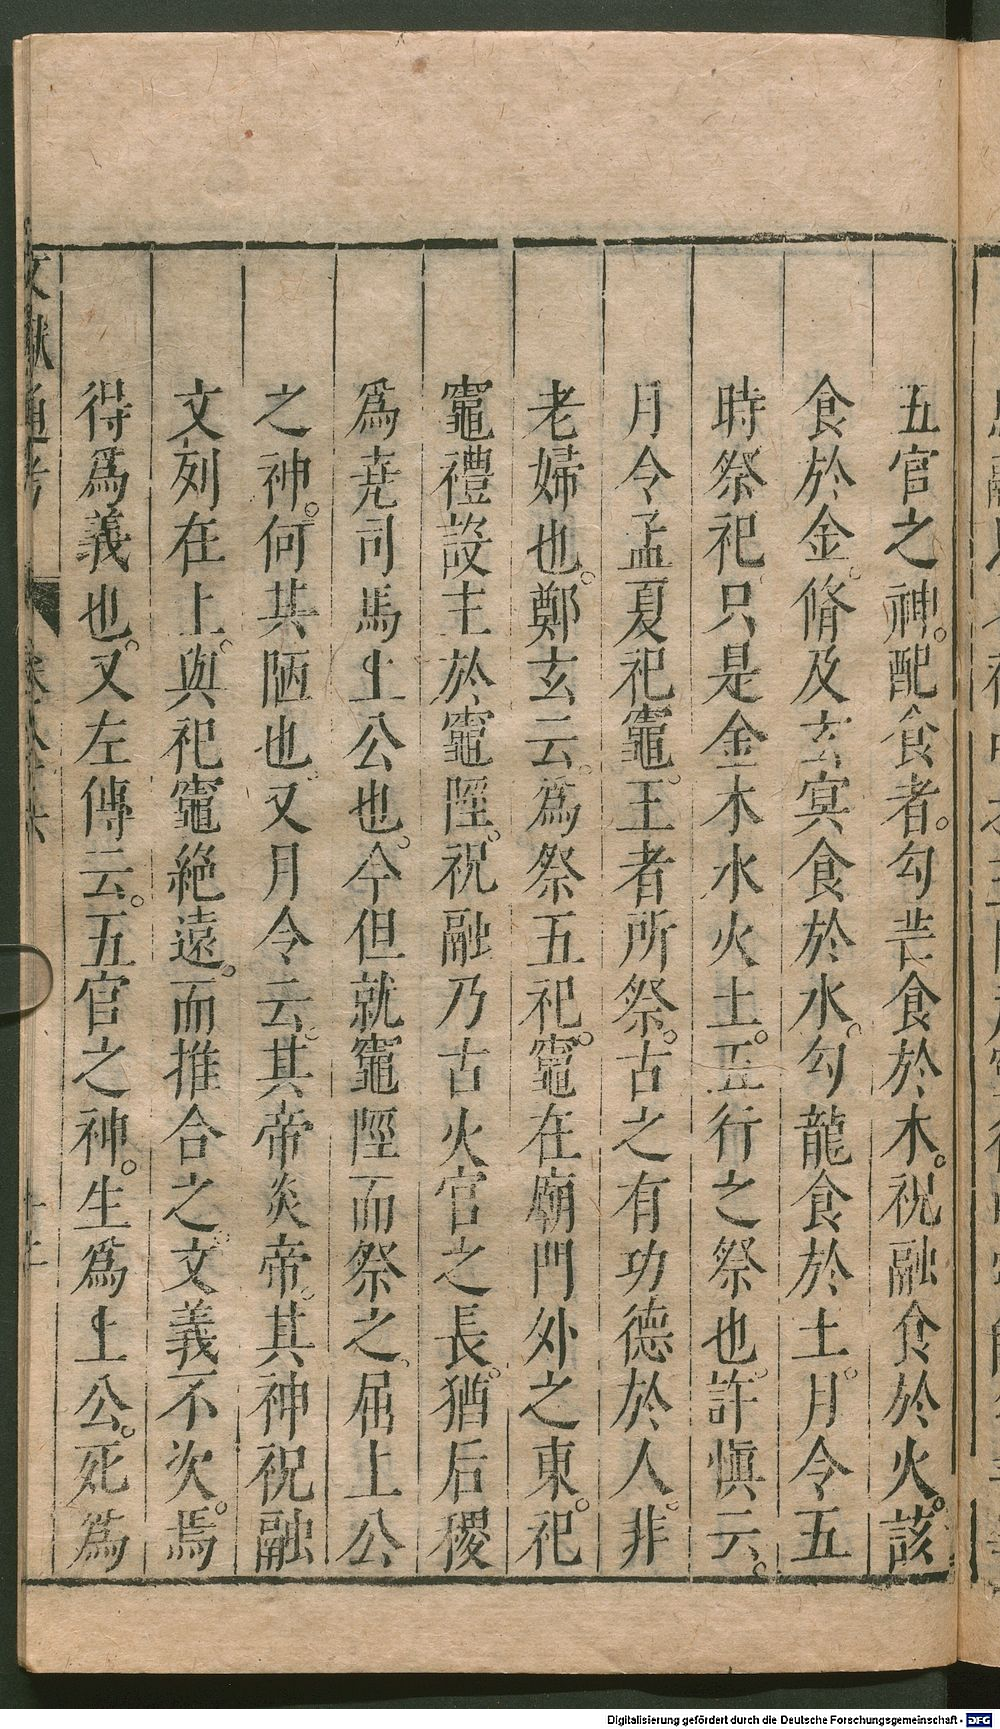 五官之神。配食者。勾芒食於木。祝融食於火。該
食於金。脩及玄冥食於水。勾龍食於土。月令五
時祭祀只是金木水火土。五行之祭也。許慎云。
月令孟夏祀竈。王者所祭。古之有功德於人。非
老婦也。鄭玄云。為祭五祀。竈在廟門外之東。祀
竈禮設主於竈陘。祝融乃古火官之長。猶后稷
爲堯司馬上公也。今但就竈陘而祭之。屈上公
之神。何其陋也。又月令云。其帝炎帝。其神祝融
文列在上。與祀竈絶遠。而推合之。文義不次。焉
得爲義也。又左傳云。五官之神。生爲上公。死爲
文獻通考
Digitalisierung gefördert durch die Deutsche Forschungsgemeinschaft - DFG